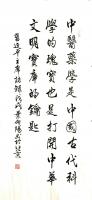 中醫藥學是中國古代科
學的瑰寶也是打開中華
文明寶庫的鑰匙
習近平主席